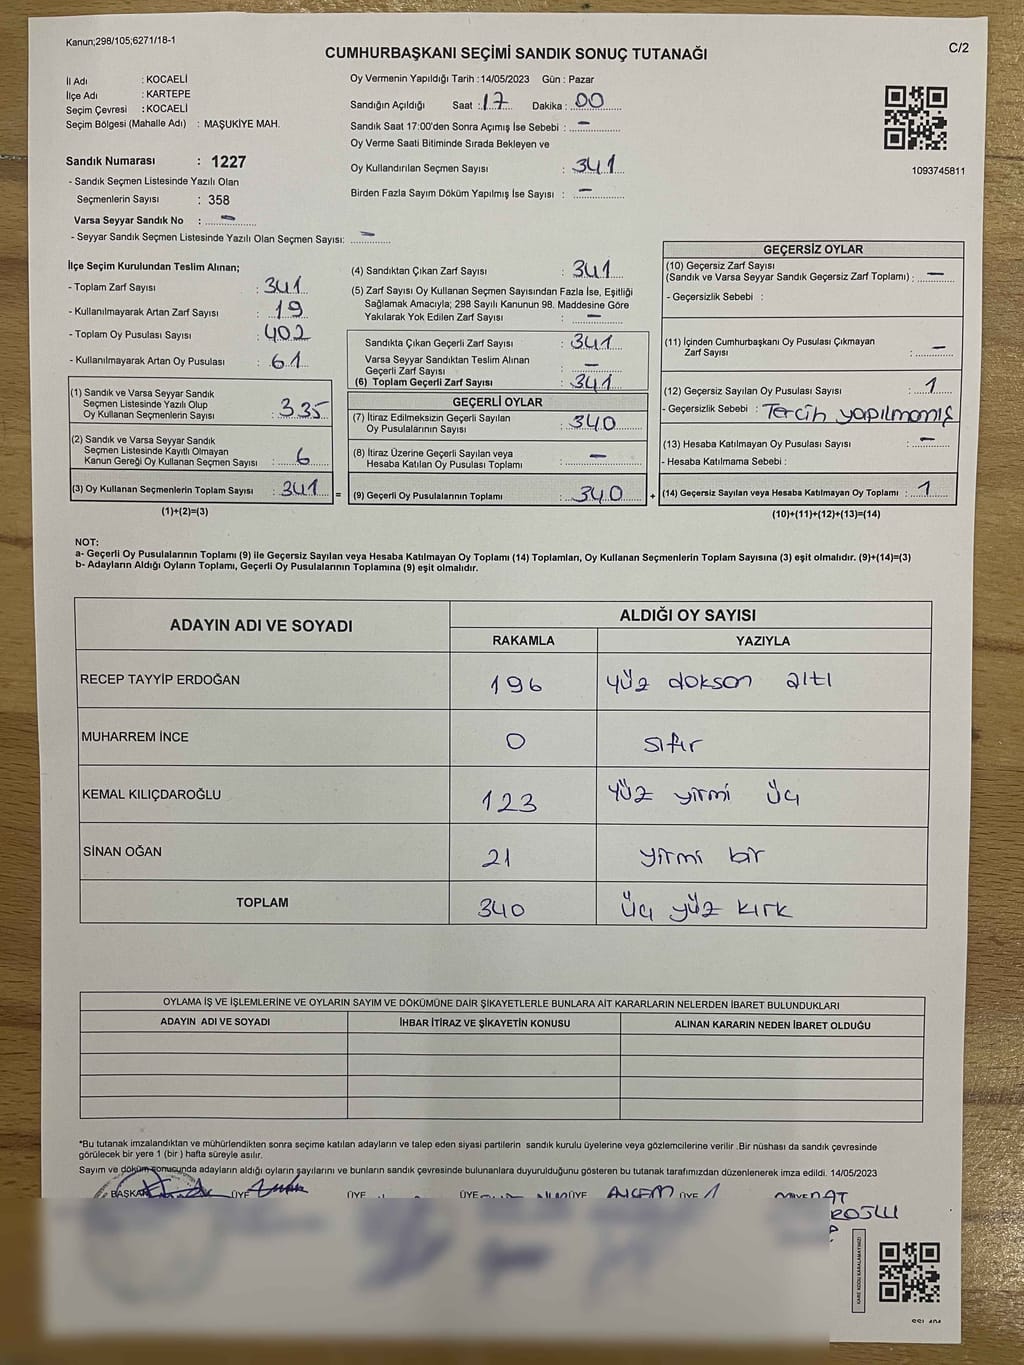 Kanun;298/105;6271/18-1
C/2
CUMHURBAŞKANI SEÇİMİ SANDIK SONUÇ TUTANAĞI
İl Adı : KOCAELİ
İlçe Adı : KARTEPE
Seçim Çevresi : KOCAELİ
Seçim Bölgesi (Mahalle Adı) : MAŞUKİYE MAH.
Sandık Numarası : 1227
- Sandık Seçmen Listesinde Yazılı Olan
Seçmenlerin Sayısı : 358
Varsa Seyyar Sandık No : -
- Seyyar Sandık Seçmen Listesinde Yazılı Olan Seçmen Sayısı: -
Oy Vermenin Yapıldığı Tarih :14/05/2023 Gün : Pazar
Sandığın Açıldığı Saat : 17 Dakika : 00
Sandık Saat 17:00'den Sonra Açımış İse Sebebi : -
Oy Verme Saati Bitiminde Sırada Bekleyen ve
Oy Kullandırılan Seçmen Sayısı : 341
Birden Fazla Sayım Döküm Yapılmış İse Sayısı : -
1093745811
İlçe Seçim Kurulundan Teslim Alınan;
- Toplam Zarf Sayısı : 341
- Kullanılmayarak Artan Zarf Sayısı : 19
- Toplam Oy Pusulası Sayısı : 402
- Kullanılmayarak Artan Oy Pusulası : 61
(1) Sandık ve Varsa Seyyar Sandık
Seçmen Listesinde Yazılı Olup
Oy Kullanan Seçmenlerin Sayısı : 335
(2) Sandık ve Varsa Seyyar Sandık
Seçmen Listesinde Kayıtlı Olmayan
Kanun Gereği Oy Kullanan Seçmen Sayısı : 6
(3) Oy Kullanan Seçmenlerin Toplam Sayısı : 341 =
(1)+(2)=(3)
(4) Sandıktan Çıkan Zarf Sayısı : 341
(5) Zarf Sayısı Oy Kullanan Seçmen Sayısından Fazla İse, Eşitliği
Sağlamak Amacıyla; 298 Sayılı Kanunun 98. Maddesine Göre
Yakılarak Yok Edilen Zarf Sayısı : -
Sandıkta Çıkan Geçerli Zarf Sayısı : 341
Varsa Seyyar Sandıktan Teslim Alınan
Geçerli Zarf Sayısı : -
(6) Toplam Geçerli Zarf Sayısı : 341
GEÇERLİ OYLAR
(7) İtiraz Edilmeksizin Geçerli Sayılan
Oy Pusulalarının Sayısı : 340
(8) İtiraz Üzerine Geçerli Sayılan veya
Hesaba Katılan Oy Pusulası Toplamı : -
(9) Geçerli Oy Pusulalarının Toplamı : 340 +
GEÇERSİZ OYLAR
(10) Geçersiz Zarf Sayısı
(Sandık ve Varsa Seyyar Sandık Geçersiz Zarf Toplamı) : -
- Geçersizlik Sebebi :
(11) İçinden Cumhurbaşkanı Oy Pusulası Çıkmayan
Zarf Sayısı : -
(12) Geçersiz Sayılan Oy Pusulası Sayısı : 1
- Geçersizlik Sebebi : Tercih yapılmamış
(13) Hesaba Katılmayan Oy Pusulası Sayısı : -
- Hesaba Katılmama Sebebi :
(14) Geçersiz Sayılan veya Hesaba Katılmayan Oy Toplamı : 1
(10)+(11)+(12)+(13)=(14)
NOT:
a- Geçerli Oy Pusulalarının Toplamı (9) ile Geçersiz Sayılan veya Hesaba Katılmayan Oy Toplamı (14) Toplamları, Oy Kullanan Seçmenlerin Toplam Sayısına (3) eşit olmalıdır. (9)+(14)=(3)
b- Adayların Aldığı Oyların Toplamı, Geçerli Oy Pusulalarının Toplamına (9) eşit olmalıdır.
ADAYIN ADI VE SOYADI ALDIĞI OY SAYISI
RAKAMLA YAZIYLA
RECEP TAYYİP ERDOĞAN 196 yüz dokson altı
MUHARREM İNCE 0 sıfır
KEMAL KILIÇDAROĞLU 123 yüz yirmi üç
SİNAN OĞAN 21 yirmi bir
TOPLAM 340 üç yüz kırk
OYLAMA İŞ VE İŞLEMLERİNE VE OYLARIN SAYIM VE DÖKÜMÜNE DAİR ŞİKAYETLERLE BUNLARA AİT KARARLARIN NELERDEN İBARET BULUNDUKLARI
ADAYIN ADI VE SOYADI İHBAR İTİRAZ VE ŞİKAYETİN KONUSU ALINAN KARARIN NEDEN İBARET OLDUĞU
*Bu tutanak imzalandıktan ve mühürlendikten sonra seçime katılan adayların ve talep eden siyasi partilerin sandık kurulu üyelerine veya gözlemcilerine verilir .Bir nüshası da sandık çevresinde
görülecek bir yere 1 (bir ) hafta süreyle asılır.
Sayım ve döküm sonucunda adayların aldığı oyların sayılarını ve bunların sandık çevresinde bulunanlara duyurulduğunu gösteren bu tutanak tarafımızdan düzenlenerek imza edildi. 14/05/2023
BAŞKAN ÜYE ÜYE ÜYE ÜYE ÜYE
KARE KODU KARALAMAYINIZ!